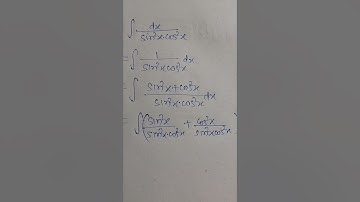 ∫ dx / sin²x·cos²x
= ∫ 1 / sin²x cos²x dx
= ∫ sin²x + cos²x / sin²x·cos²x dx
= ∫ ( sin²x / sin²x·cos²x + cos²x / sin²x cos²x